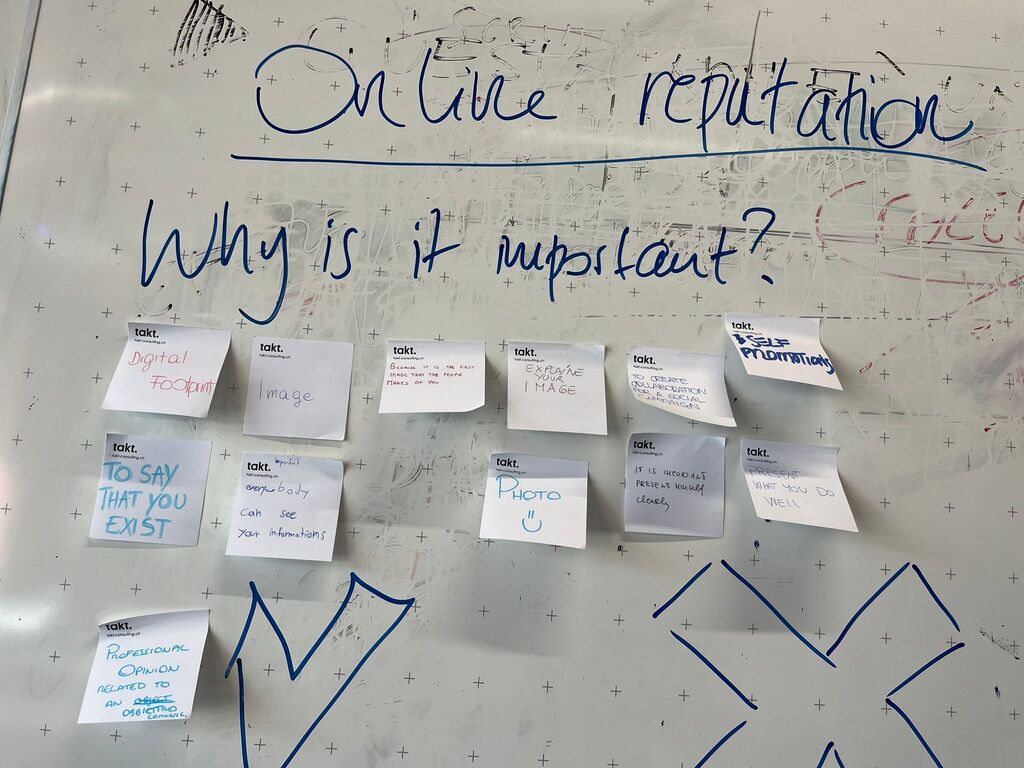 Online reputation
Why is it important?
takt.
takt-consulting.ch
Digital
Footprint
takt.
takt-consulting.ch
Image
takt.
takt-consulting.ch
BECAUSE IT IS THE FIRST
IMAGE THAT THE PEOPLE
MAKES OF YOU
takt.
takt-consulting.ch
EXPLAINE
YOUR
IMAGE
takt.
takt-consulting.ch
TO CREATE
COLLABORATION
FOR A SOCIAL
CAMPAIGN
takt.
takt-consulting.ch
SELF
PROMOTIONS
takt.
takt-consulting.ch
TO SAY
THAT YOU
EXIST
takt.
takt-consulting.ch
important
everybody
can see
your informations
takt.
takt-consulting.ch
PHOTO
takt.
takt-consulting.ch
IT IS IMPORTANT
PRESENT
clearly
takt.
takt-consulting.ch
PRESENT
WHAT YOU DO
WELL
takt.
takt-consulting.ch
PROFESSIONAL
OPINION
RELATED TO
AN OBJECT
OBBIETTIVO
COMUNIC.